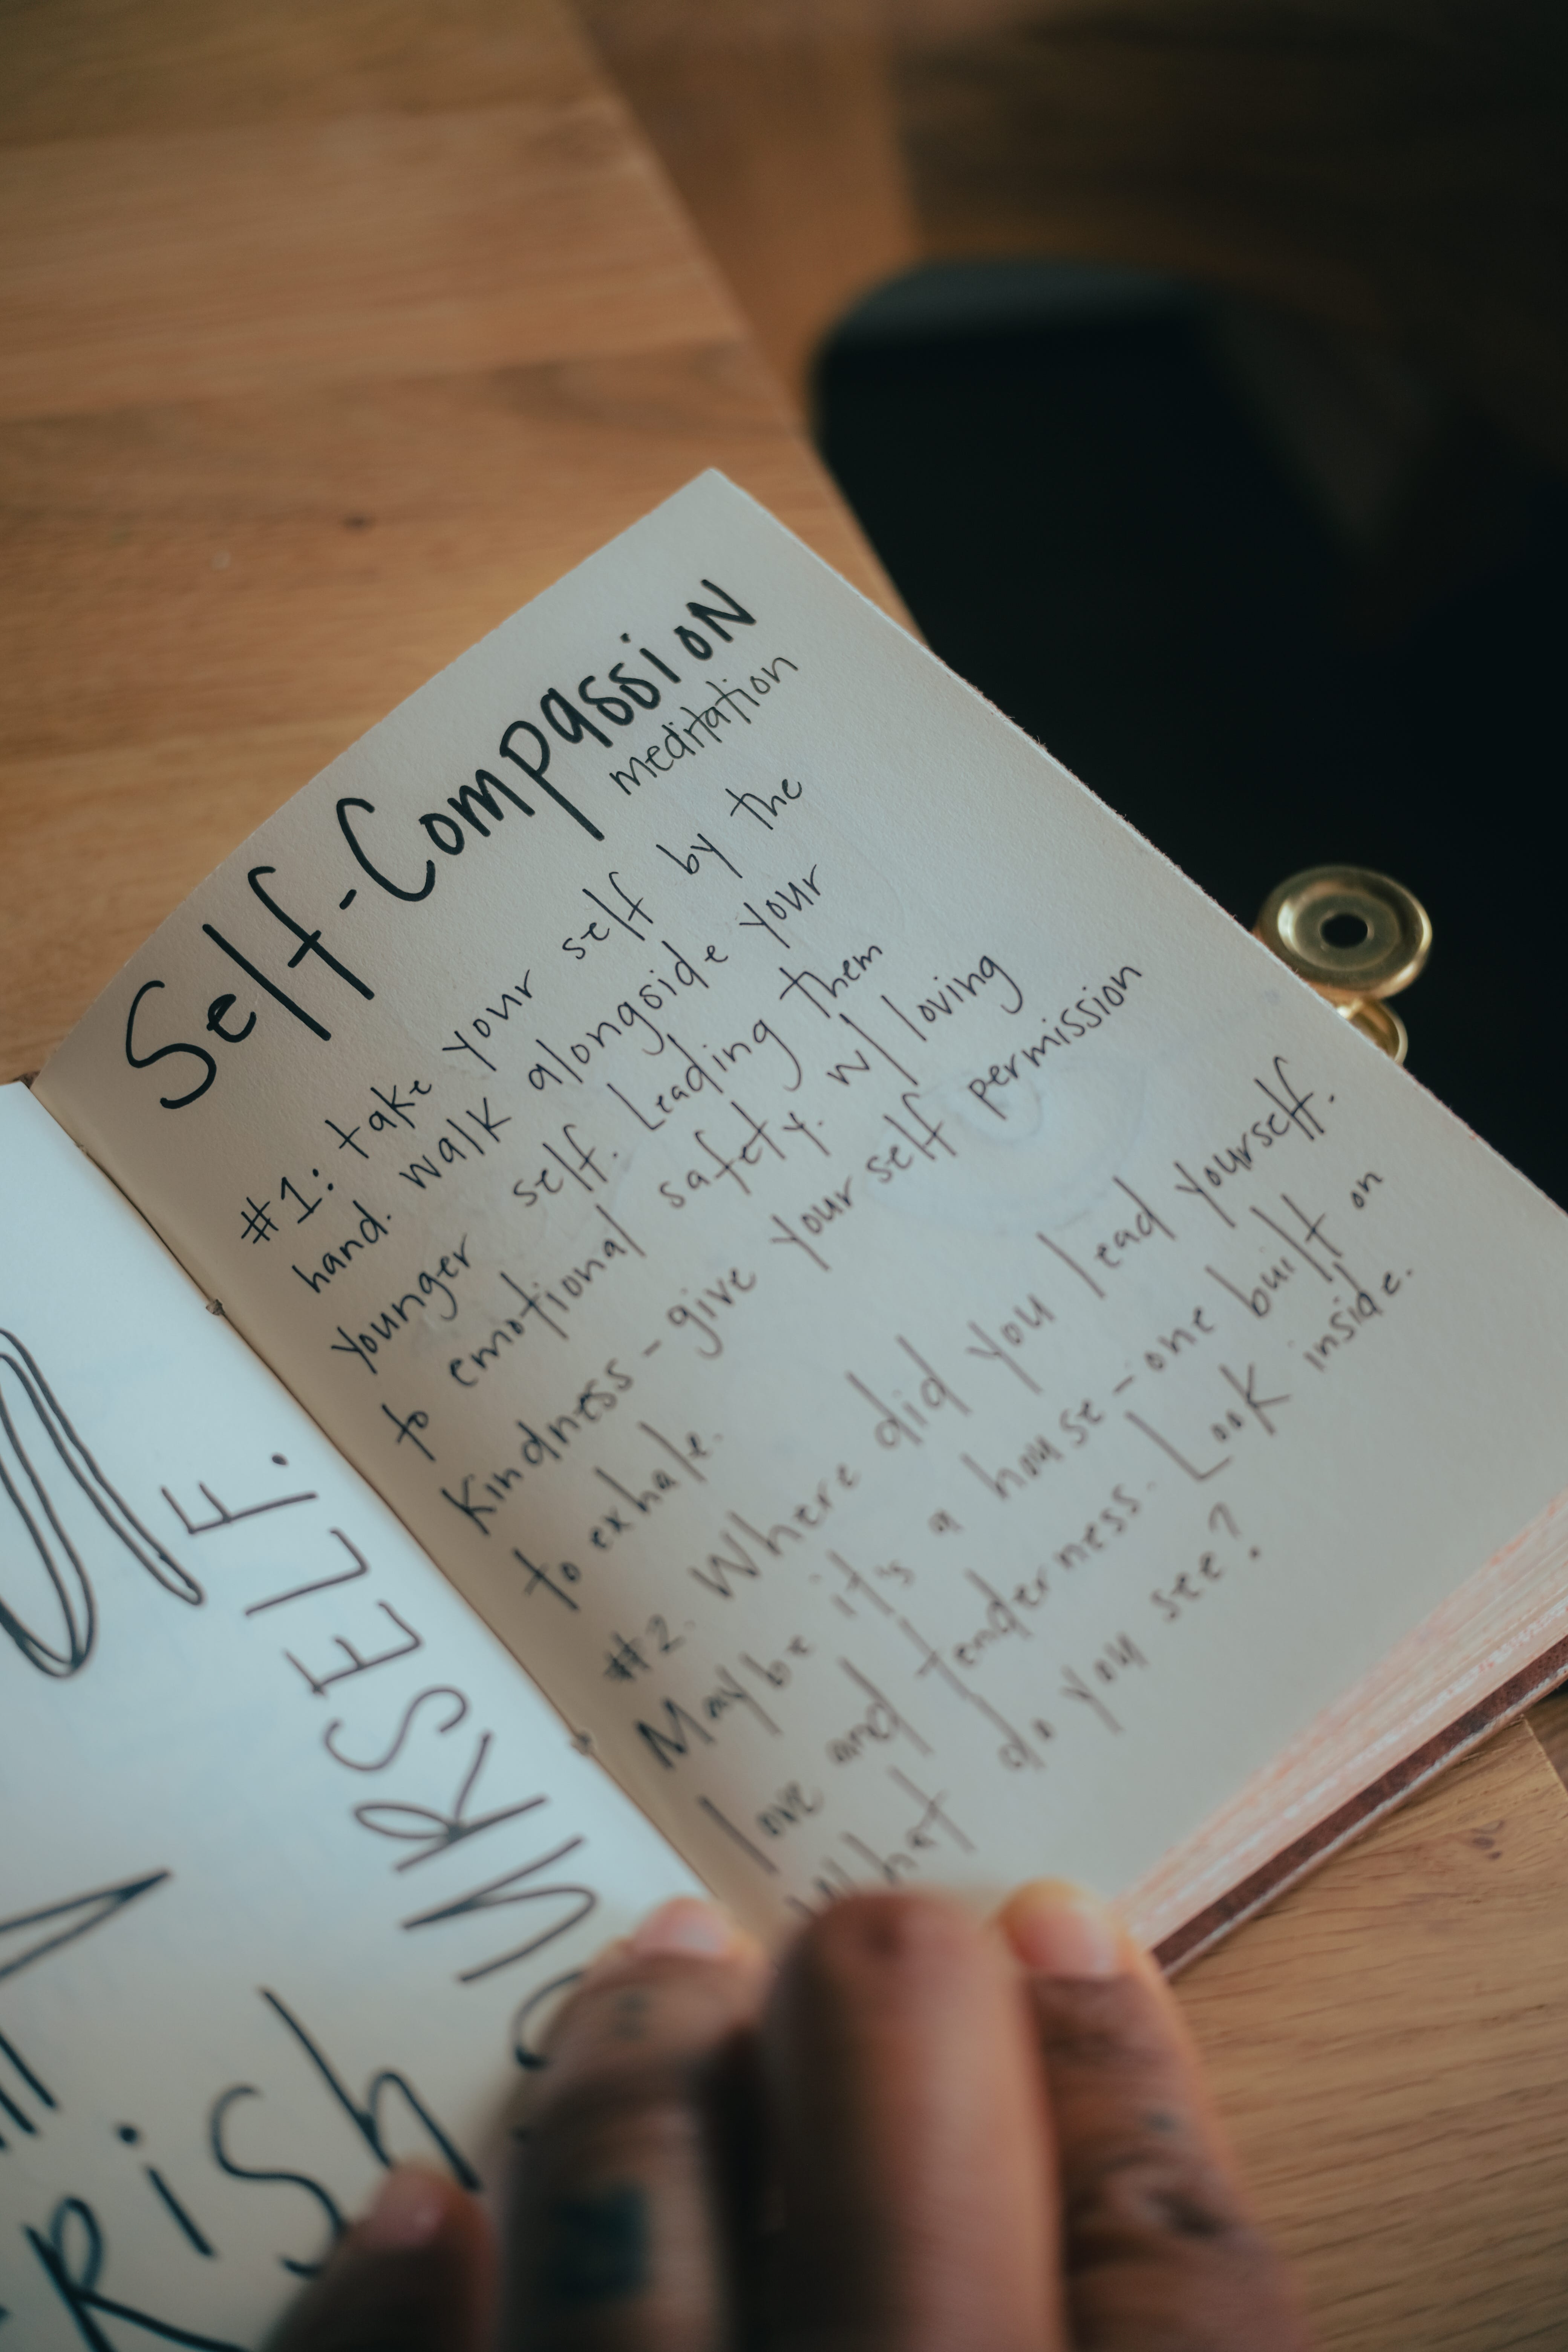 RISh
URSELF.
Self-CompassioN
meditation
#1: take your self by the
hand. walk alongside your
younger self. Leading them
to emotional safety. w/ loving
Kindness - give yourself permission
to exhale.
#2. Where did you lead yourself.
Maybe it's a house - one built on
love and tenderness. Look inside.
What do you see?